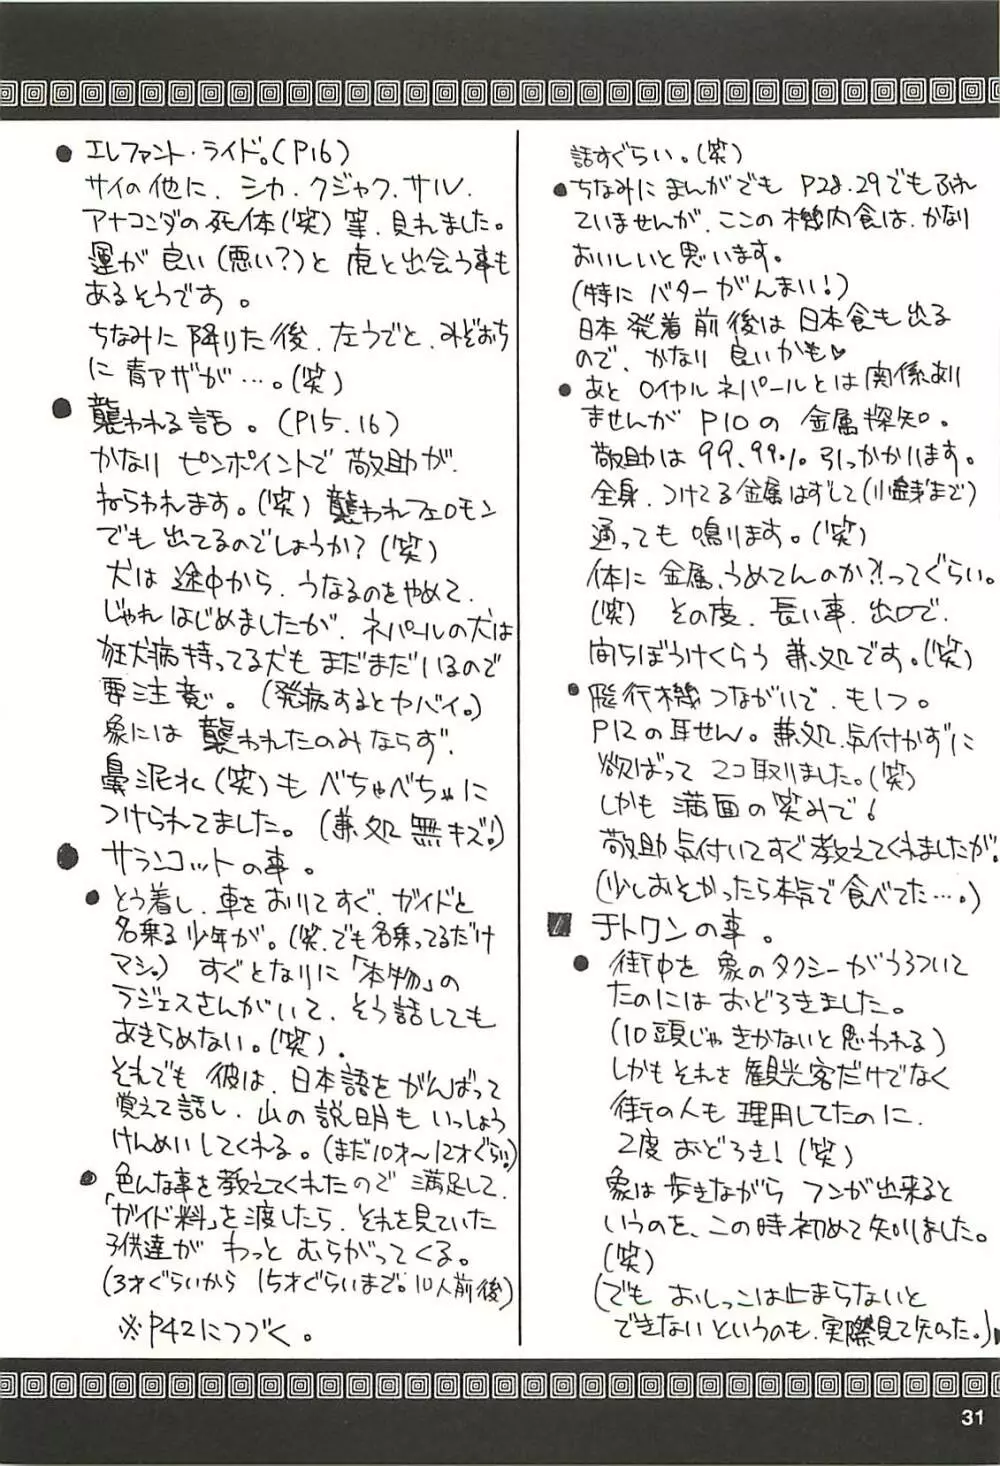 ● エレファント・ライド。(P16)
サイの他に、シカ、クジャク、サル、
アナコンダの死体(笑)等、見れました。
運が良い(悪い?)と虎と出会う事も
あるそうです。
ちなみに降りた後、左うでと、みぞおち
に青アザが…。(笑)
● 襲われる話。(P15.16)
かなりピンポイントで敬助が、
ねらわれます。(笑)襲われフェロモン
でも出てるのでしょうか?(笑)
犬は途中から、うなるのをやめて、
じゃれはじめましたが、ネパールの犬は
狂犬病持ってる犬もまだまだいるので
要注意。(発病するとヤバイ。)
象には襲われたのみならず、
鼻泥水(笑)もべちゃべちゃに
つけられてました。(兼処無キズ!)
● サランコットの事。
● とう着し、車をおりてすぐ、ガイドと
名乗る少年が。(笑、でも名乗ってるだけ
マシ。)すぐとなりに「本物」の
ラジェスさんがいて、そう話しても
あきらめない。(笑)、
それでも彼は、日本語をがんばって
覚えて話し、山の説明もいっしょう
けんめいしてくれる。(まだ10才〜12才ぐらい)
● 色んな事を教えてくれたので満足して、
「ガイド料」を渡したら、それを見ていた
子供達がわっとむらがってくる。
(3才ぐらいから15才ぐらいまで。10人前後)
※P42につづく。
話すぐらい。(笑)
● ちなみにまんがでもP28.29でもふれ
ていませんが、ここの機内食は、かなり
おいしいと思います。
(特にバターがんまい!)
日本発着前後は日本食も出る
ので、かなり良いかも♡
● あとロイヤルネパールとは関係あり
ませんがP10の金属探知。
敬助は99.99%引っかかります。
全身、つけてる金属はずして(小銭まで)
通っても鳴ります。(笑)
体に金属、うめてんのか?!ってぐらい。
(笑)その度、長い事、出口で、
待ちぼうけくらう兼処です。(笑)
● 飛行機つながりで、もう1つ。
P12の耳せん。兼処、気付かずに
欲ばって2コ取りました。(笑)
しかも満面の笑みで!
敬助気付いてすぐ教えてくれましたが、
(少しおそかったら本気で食べてた…。)
■ チトワンの事。
● 街中を象のタクシーがうろついて
たのにはおどろきました。
(10頭じゃきかないと思われる)
しかもそれを観光客だけでなく
街の人も理用してたのに、
2度おどろき!(笑)
象は歩きながらフンが出来ると
いうのを、この時初めて知りました。
(笑)
(でもおしっこは止まらないと
できないというのも、実際見て知った。)
31